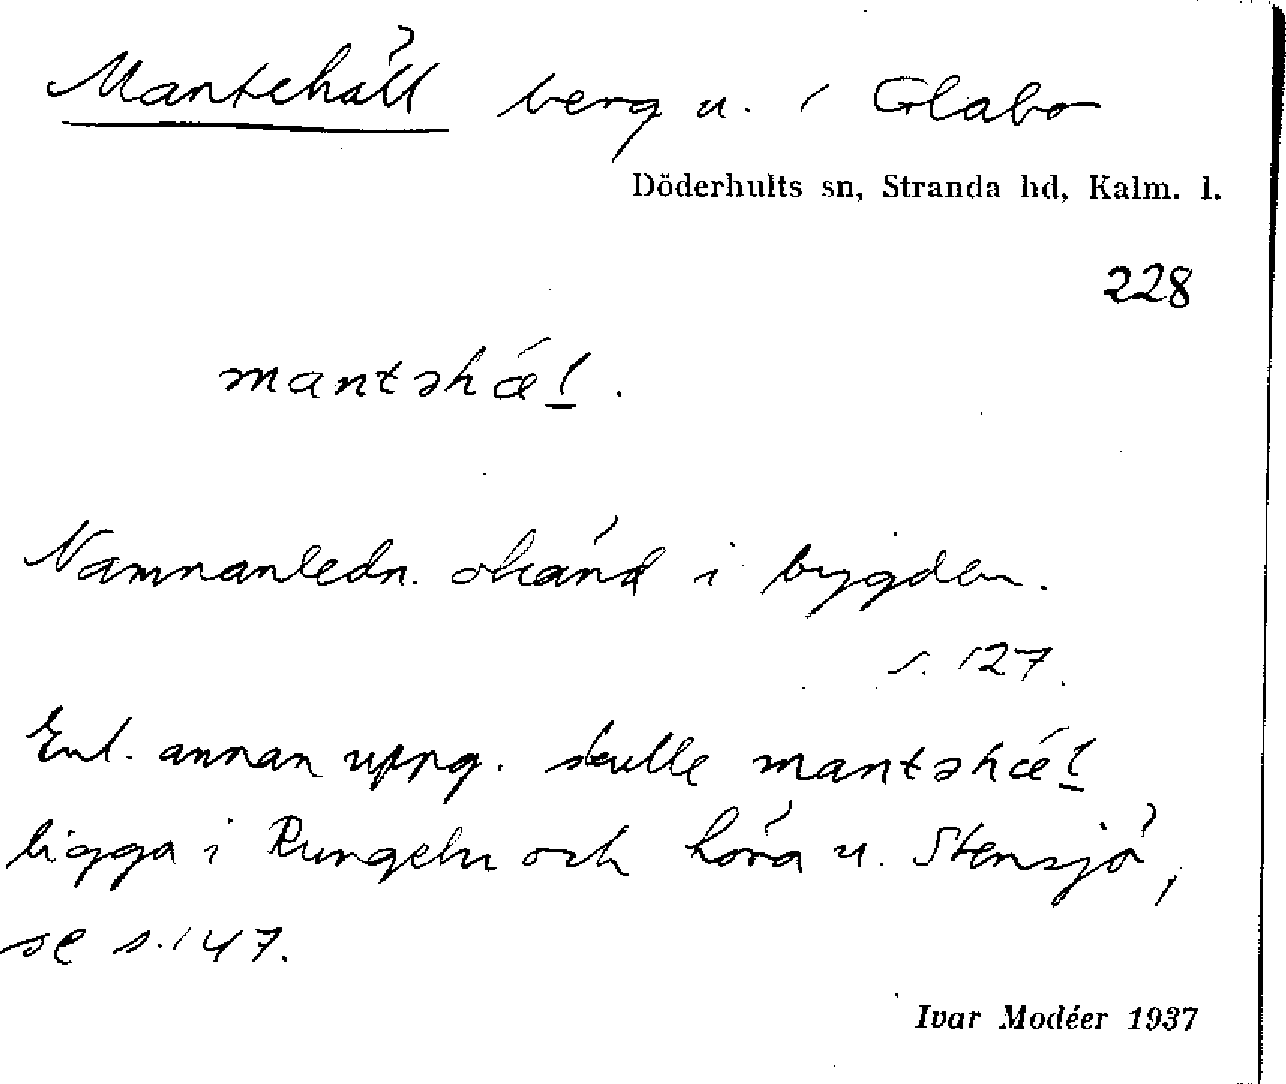 Mantehäll berg u. i Glabo
Döderhults sn, Stranda hd, Kalm. l.
228
mantəhǽl̲.
Namnanledn. okänd i bygden.
s. 127.
Enl. annan uppg. skulle mantəhǽl̲
ligga i Rungeln och höra u. Stensjö,
se s. 147.
Ivar Modéer 1937